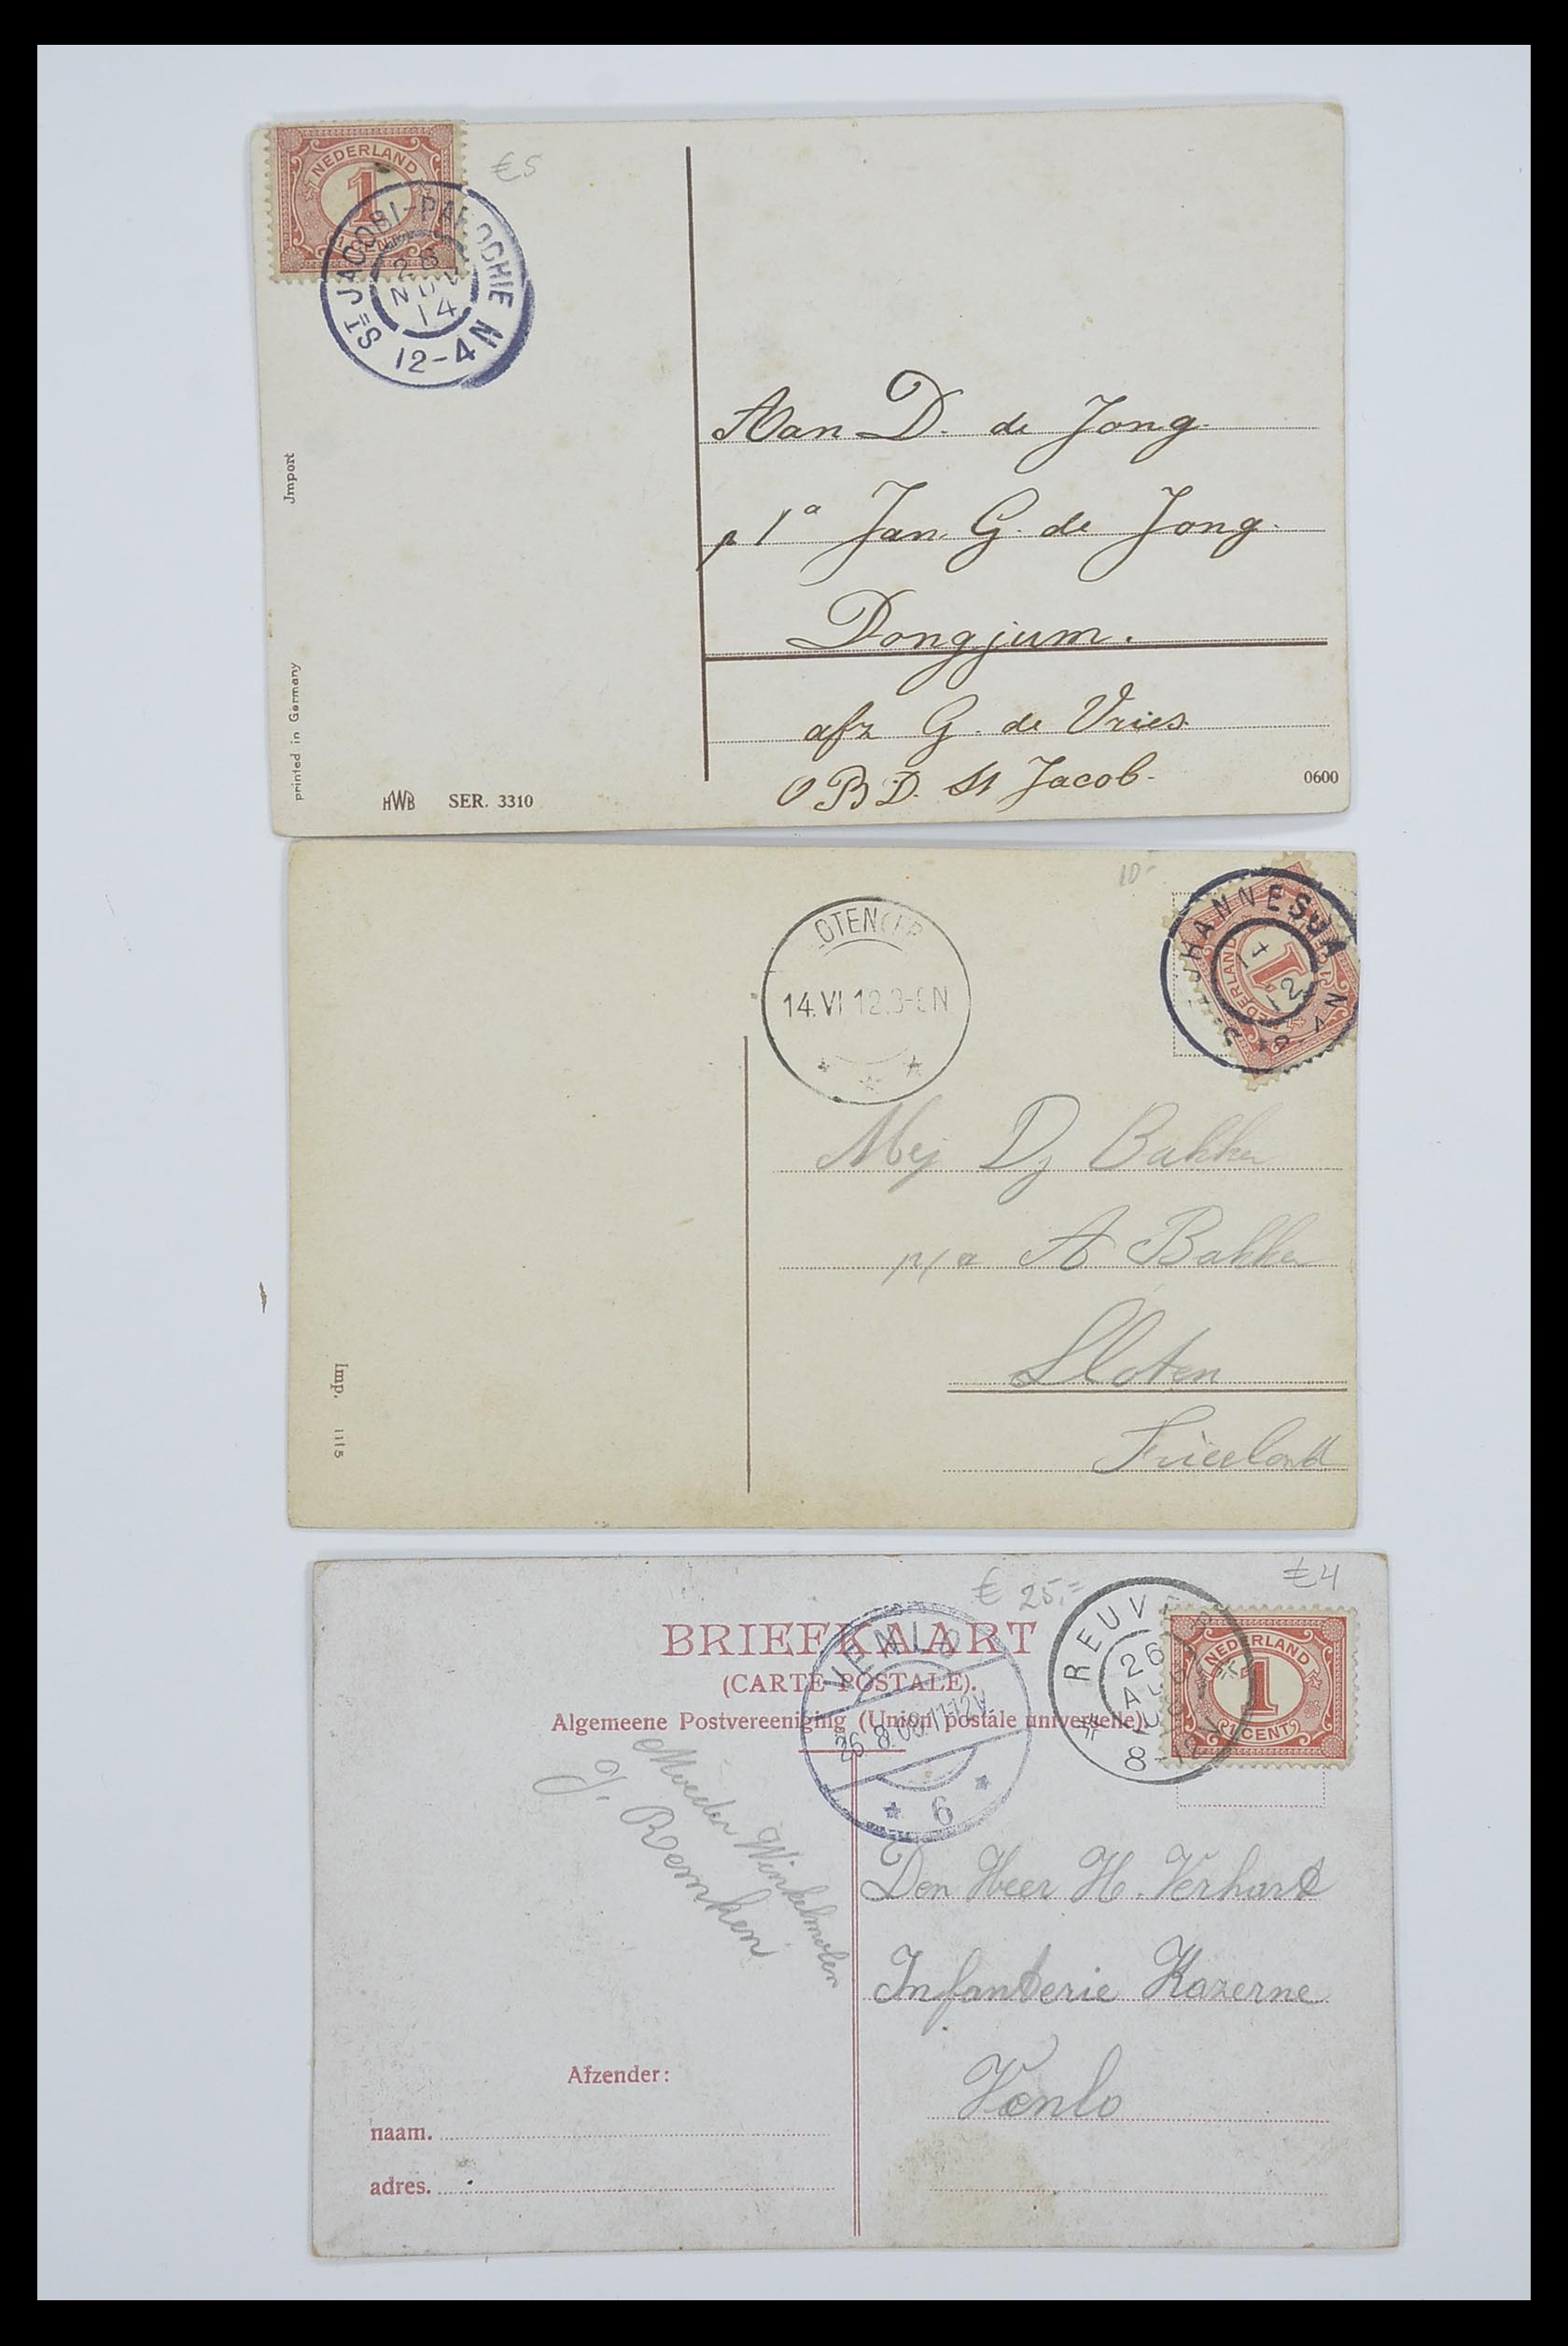 NEDERLAND
1
CENT
€5
ST JACOBI-PAROCHIE
NOV
14
12-4 N
Aan D. de Jong.
p/a Jan. G. de Jong.
Dongjum.
afz G. de Vries.
O B D. St Jacob.
0600
Jmport
printed in Germany
HWB SER. 3310
10-
14.VI 12
NEDERLAND
1
14
12
N
Mej Dj Bakker
p/a A Bakker
Sloten
Friesland
Imp. 1115
€ 25.=
€4
BRIEFKAART
(CARTE POSTALE).
Algemeene Postvereeniging (Union postale universelle).
VENLO
26.8.08.11-12V.
* 6 *
26
AUG
08
8-12V
NEDERLAND
1
CENT
Moeder Winkelmolen
J. Remken
Den Heer H. Verhart
Infanterie Kazerne
Venlo
Afzender:
naam.
adres.